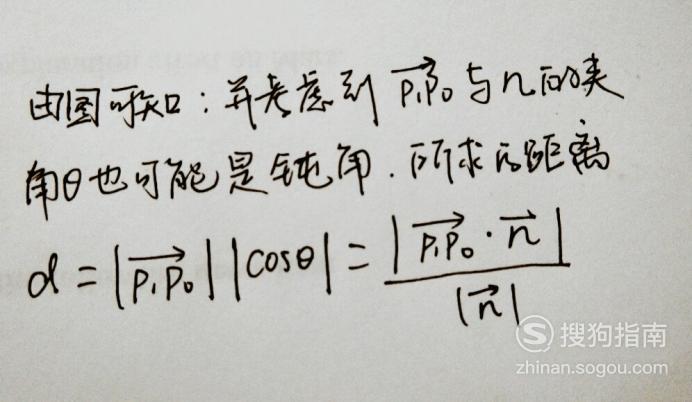 由图可知：并考虑到 $\overrightarrow{P_1P_0}$ 与 n 的夹
角θ也可能是钝角．所求的距离
$d = |\overrightarrow{P_1P_0}||\cos\theta| = \frac{|\overrightarrow{P_1P_0} \cdot \vec{n}|}{|\vec{n}|}$
S 搜狗指南
zhinan.sogou.com